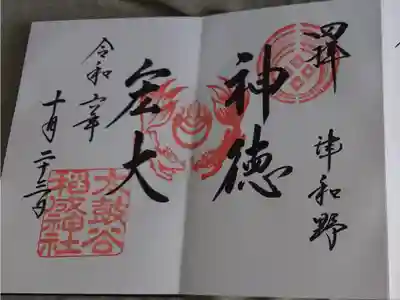 津和野
神徳
宏大
令和六年
十月二十三日
太皷谷
稲成神社